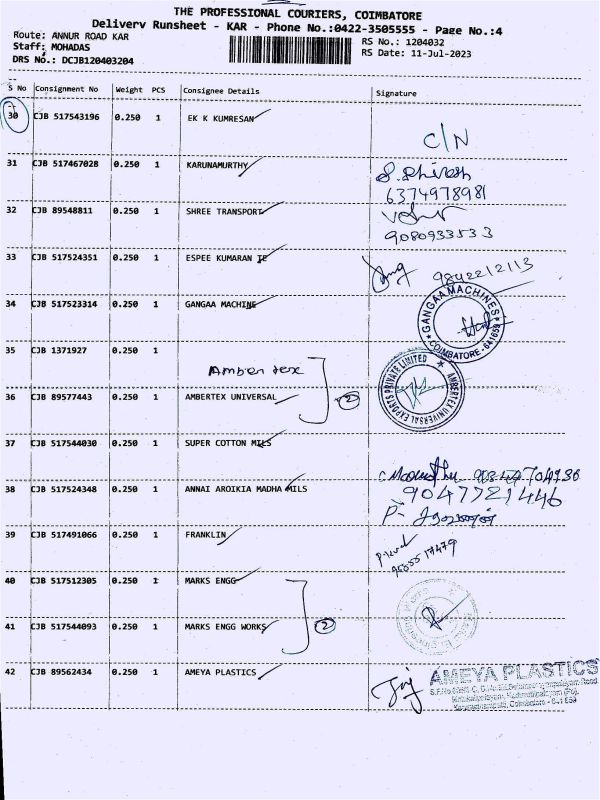 THE PROFESSIONAL COURIERS, COIMBATORE
Delivery Runsheet - KAR - Phone No.:0422-3505555 - Page No.:4
Route: ANNUR ROAD KAR
RS No.: 1204032
Staff: MOHADAS
RS Date: 11-Jul-2023
DRS No.: DCJB120403204
S No Consignment No Weight PCS Consignee Details Signature
30 CJB 517543196 0.250 1 EK K KUMRESAN
C/N
31 CJB 517467028 0.250 1 KARUNAMURTHY
6374978981
32 CJB 89548811 0.250 1 SHREE TRANSPORT
9080933533
33 CJB 517524351 0.250 1 ESPEE KUMARAN TE
9842212113
34 CJB 517523314 0.250 1 GANGAA MACHINE
GANGAA MACHINES
COIMBATORE - 641659
35 CJB 1371927 0.250 1
Amber tex
36 CJB 89577443 0.250 1 AMBERTEX UNIVERSAL
2
AMBERTEX UNIVERSAL EXPORTS PRIVATE LIMITED
37 CJB 517544030 0.250 1 SUPER COTTON MILS
38 CJB 517524348 0.250 1 ANNAI AROIKIA MADHA MILS
9047721446
39 CJB 517491066 0.250 1 FRANKLIN
40 CJB 517512305 0.250 1 MARKS ENGG
41 CJB 517544093 0.250 1 MARKS ENGG WORKS
2
42 CJB 89562434 0.250 1 AMEYA PLASTICS
AMEYA PLASTICS
Coimbatore - 641 659